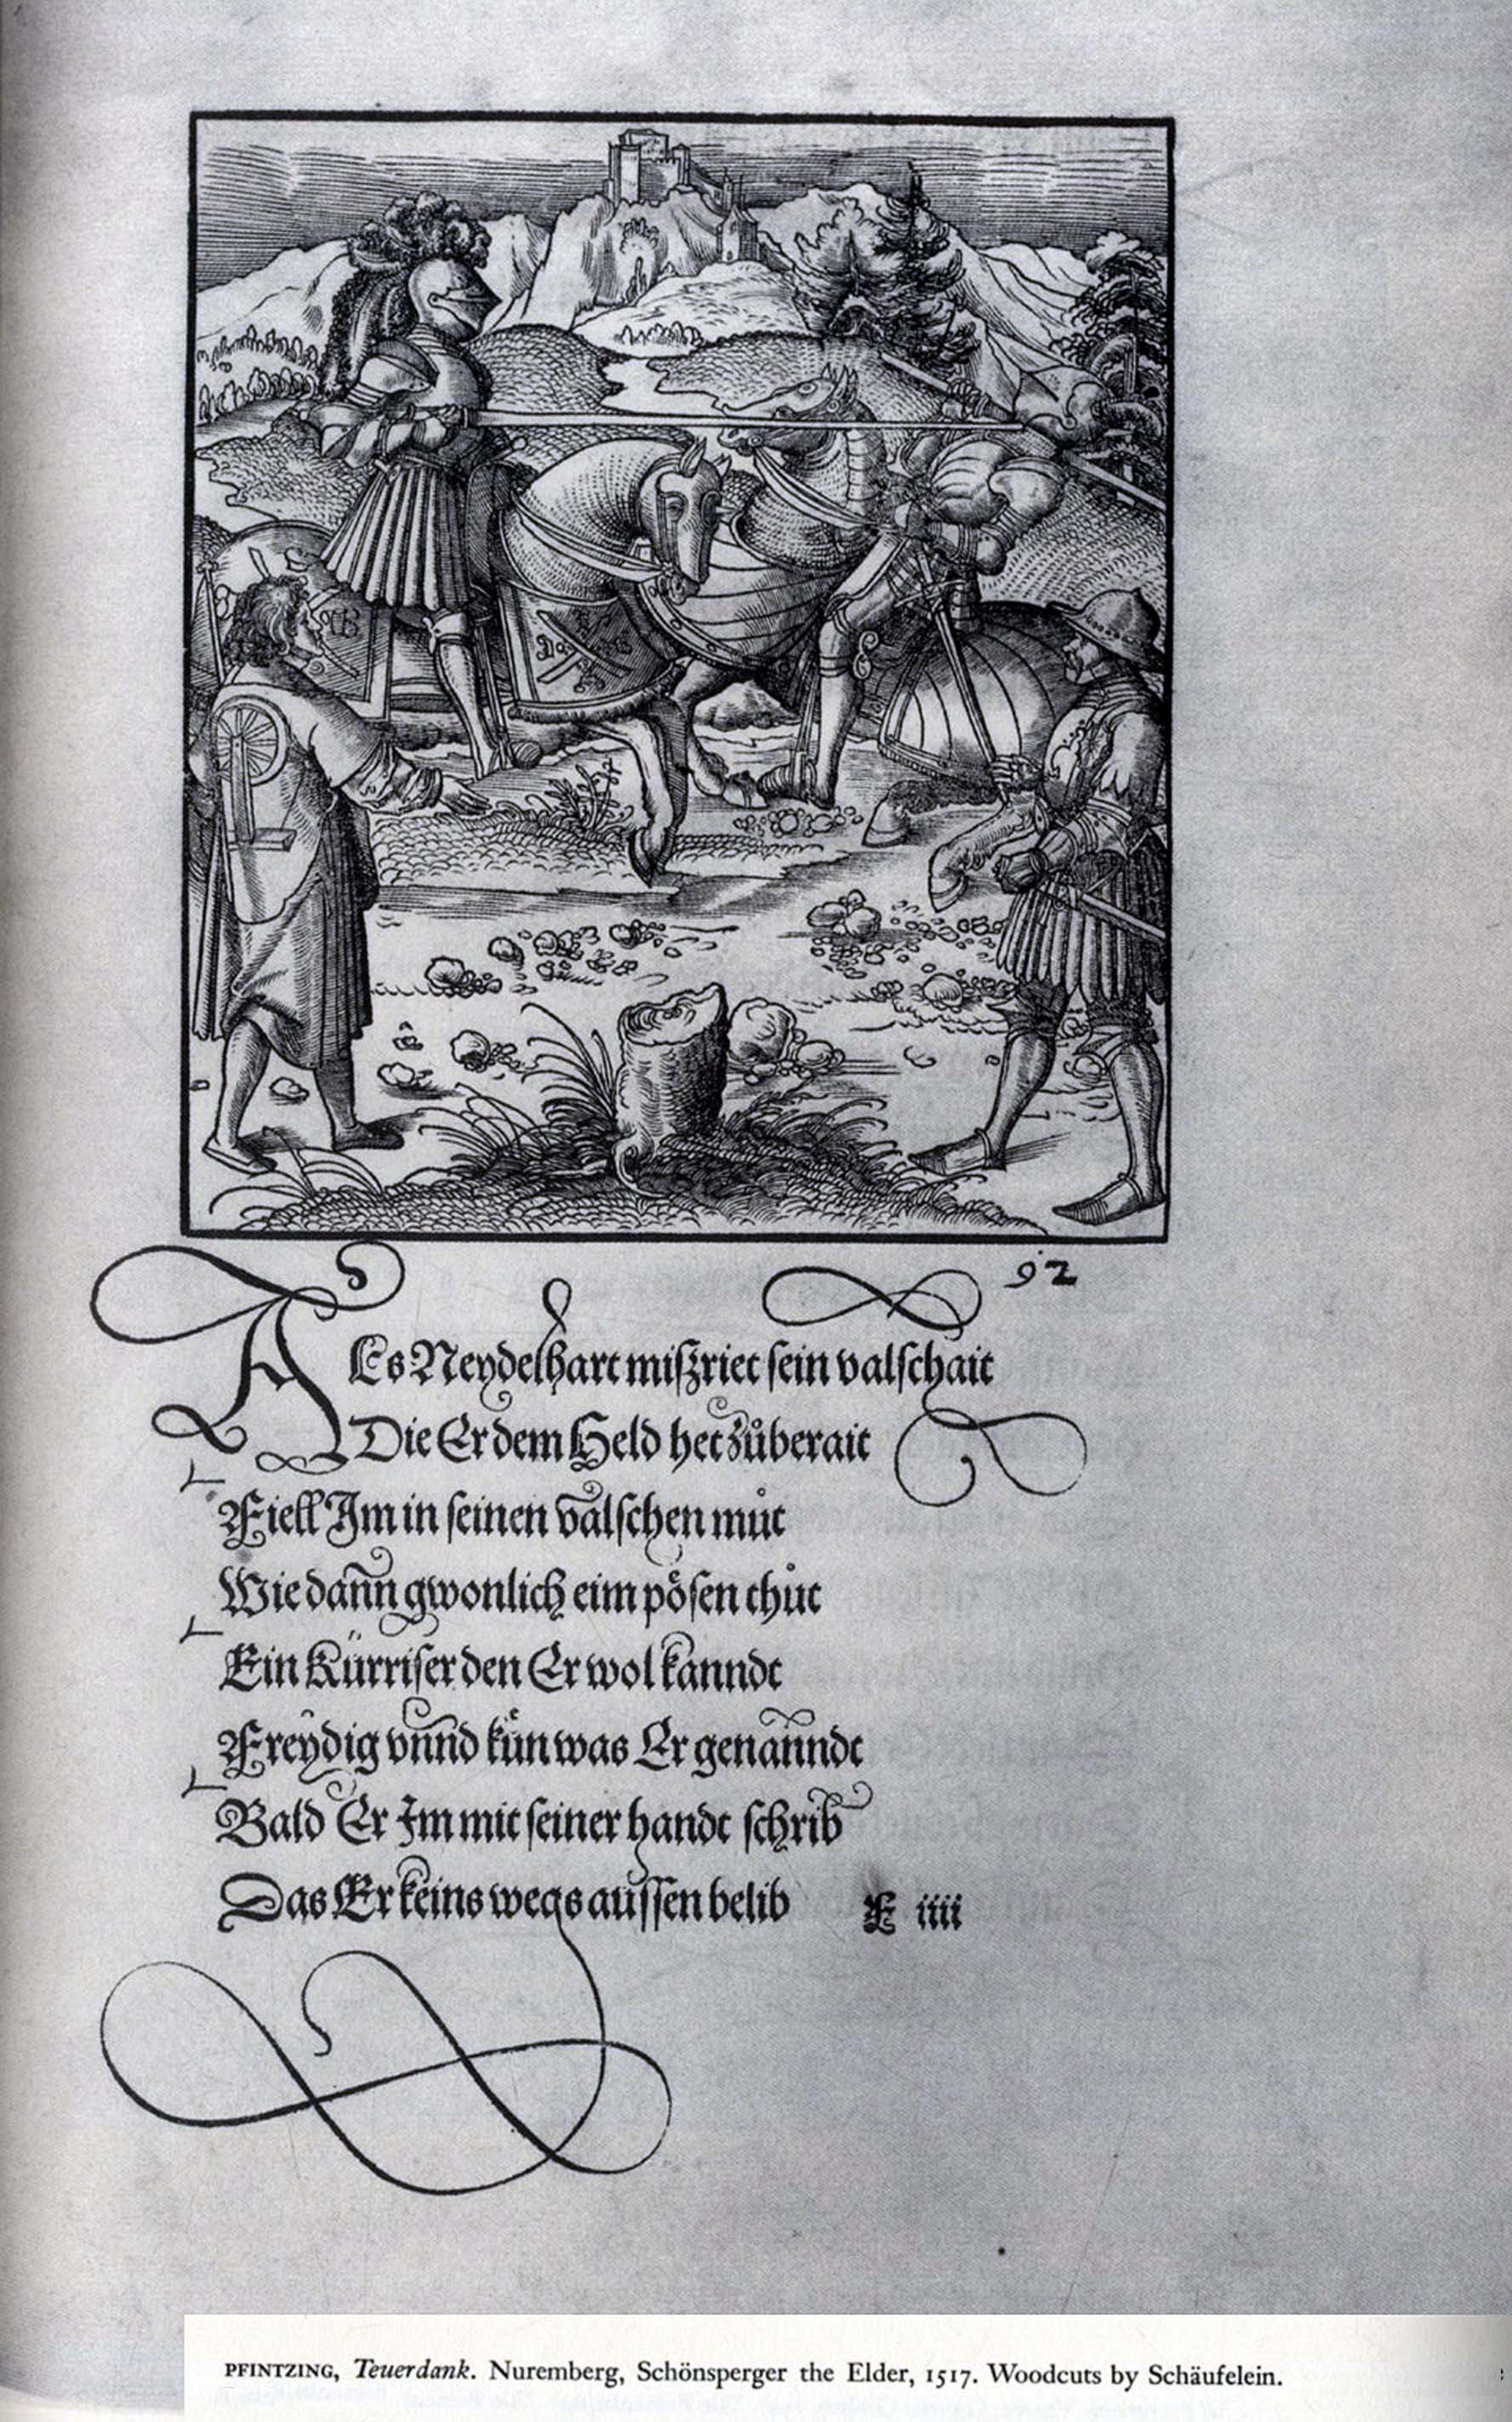 92
Als Neydelhart miſzriet ſein valſchait
Die Er dem Held het zůberait
Fiell Im in ſeinen valſchen můt
Wie dann gwonlich eim pöſen thůt
Ein Kürriſer den Er wol kanndt
Freydig vnnd kün was Er genanndt
Bald Er Im mit ſeiner handt ſchrib
Das Er keins wegs auſſen belib
F iiii
PFINTZING, Teuerdank. Nuremberg, Schönsperger the Elder, 1517. Woodcuts by Schäufelein.